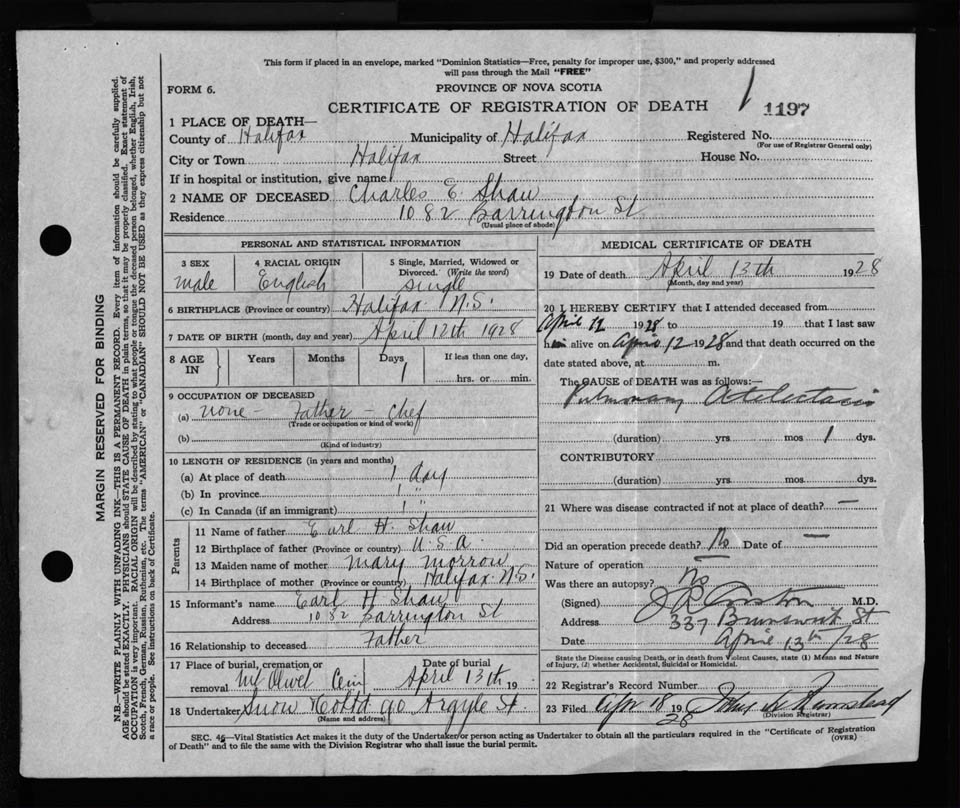 This form if placed in an envelope, marked "Dominion Statistics—Free, penalty for improper use, $300," and properly addressed
will pass through the Mail "FREE"
FORM 6.
PROVINCE OF NOVA SCOTIA
CERTIFICATE OF REGISTRATION OF DEATH
1197
1 PLACE OF DEATH—
County of Halifax Municipality of Halifax Registered No.
(For use of Registrar General only)
City or Town Halifax Street House No.
If in hospital or institution, give name
2 NAME OF DECEASED Charles E. Shaw
Residence 1082 Barrington St
(Usual place of abode)
PERSONAL AND STATISTICAL INFORMATION
3 SEX
male
4 RACIAL ORIGIN
English
5 Single, Married, Widowed or
Divorced. (Write the word)
single
6 BIRTHPLACE (Province or country) Halifax N.S.
7 DATE OF BIRTH (month, day and year) April 12th 1928
8 AGE IN
Years
Months
Days
1
If less than one day,
hrs. or min.
9 OCCUPATION OF DECEASED
(a) none - Father - Chef
(Trade or occupation or kind of work)
(b)
(Kind of industry)
10 LENGTH OF RESIDENCE (in years and months)
(a) At place of death 1 day
(b) In province 1 "
(c) In Canada (if an immigrant) 1 "
Parents
11 Name of father Earl H. Shaw
12 Birthplace of father (Province or country) U.S.A.
13 Maiden name of mother Mary Morrow
14 Birthplace of mother (Province or country) Halifax N.S.
15 Informant's name Earl H Shaw
Address 1082 Barrington St
16 Relationship to deceased Father
17 Place of burial, cremation or
removal Mt Olivet Cem
Date of burial
April 13th 19
18 Undertaker Snow & Co Ltd 90 Argyle St.
(Name and address)
MEDICAL CERTIFICATE OF DEATH
19 Date of death April 13th 1928
(Month, day and year)
20 I HEREBY CERTIFY that I attended deceased from
April 12 1928 to 19 that I last saw
him alive on April 12 1928 and that death occurred on the
date stated above, at m.
The CAUSE OF DEATH was as follows:—
Pulmonary Atelectasis
(duration) yrs mos 1 dys.
CONTRIBUTORY
(duration) yrs. mos dys.
21 Where was disease contracted if not at place of death? —
Did an operation precede death? No Date of —
Nature of operation —
Was there an autopsy? No
(Signed) M.D.
Address 337 Brunswick St
Date April 13th /28
State the Disease causing Death, or in death from Violent Causes, state (1) Means and Nature
of Injury, (2) whether Accidental, Suicidal or Homicidal.
22 Registrar's Record Number
23 Filed Apr 18 1928 John
(Division Registrar)
SEC. 46—Vital Statistics Act makes it the duty of the Undertaker or person acting as Undertaker to obtain all the particulars required in the "Certificate of Registration
of Death" and to file the same with the Division Registrar who shall issue the burial permit.
(OVER)
MARGIN RESERVED FOR BINDING
N.B.—WRITE PLAINLY WITH UNFADING INK—THIS IS A PERMANENT RECORD. Every item of information should be carefully supplied.
AGE should be stated EXACTLY. PHYSICIANS should STATE CAUSE OF DEATH in plain terms, so that it may be properly classified. Exact statement of
OCCUPATION is very important. RACIAL ORIGIN will be described by stating to what people or tongue the deceased person belonged, whether English, Irish,
Scotch, French, German, Russian, Ruthenian, etc. The terms "AMERICAN" or "CANADIAN" SHOULD NOT BE USED as they express citizenship but not
a race or people. See instructions on back of Certificate.